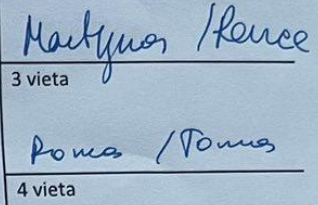 Martynas / Rence
3 vieta
Romas / Tomas
4 vieta